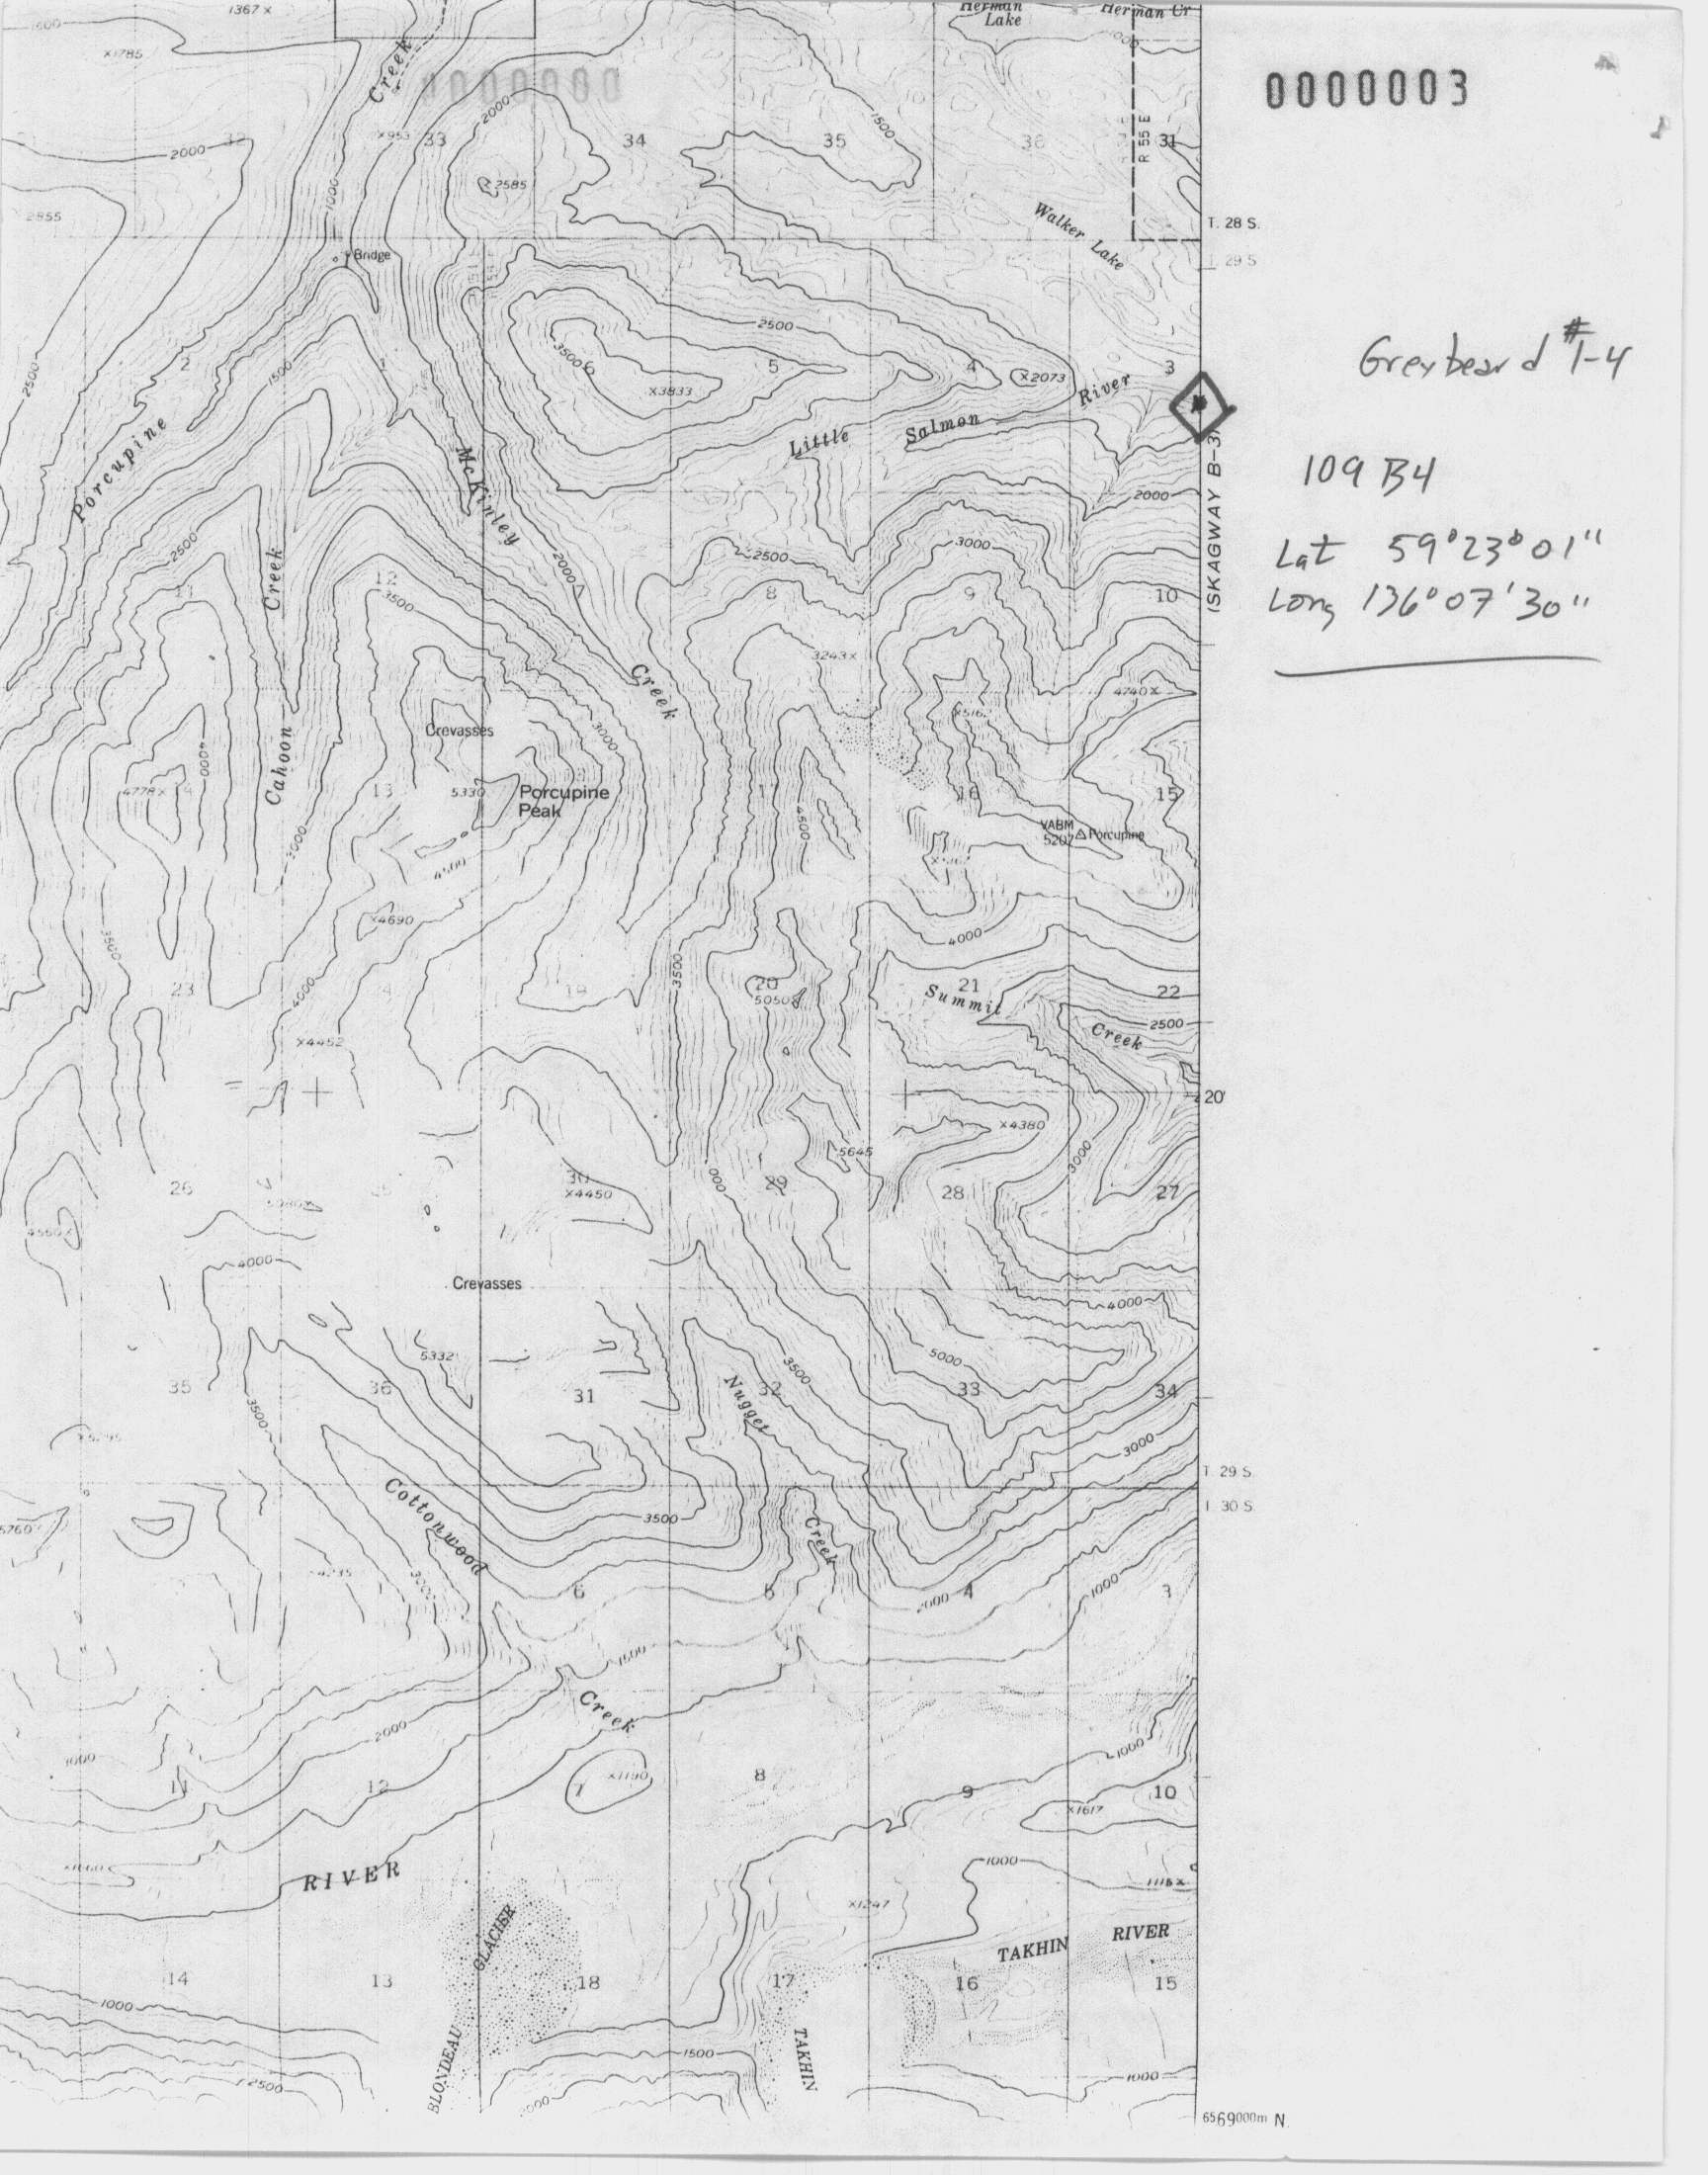 1367 x
Herman
Lake
Herman Cr
1500
x1785
Creek
1000
0000000
0000003
2000
x953
33
34
35
1500
36
R 55 E
31
32
2000
1000
x2585
2855
Walker Lake
T. 28 S.
T. 29 S
Bridge
Greybeard #1-4
2500
2500
3500
6
5
4
x2073
3
River
2
1500
x3833
Little Salmon
Porcupine
McKinley
109 B4
2000
(SKAGWAY B-3)
2500
Creek
2500
3000
Lat 59°23°01"
2000
12
11
8
9
10
Long 136°07'30"
3500
3243x
Creek
4740x
x5162
Crevasses
3000
Cahoon
4000
4778x
13
5330
Porcupine
Peak
17
16
15
4500
VABM
5207
Porcupine
3000
4500
x4690
3500
4000
3500
23
4000
19
20
5050
21
Summit
22
2500
Creek
x4452
20'
x4380
5645
3000
26
30
x4450
000
29
28
27
4560x
4000
Crevasses
4000
5332
3500
5000
35
36
31
32
33
34
Nugget
3500
3000
T 29 S
T. 30 S.
Cottonwood
3500
Creek
5760
4235
3000
6
5
4
3
2000
1000
1500
Creek
2000
1000
1000
11
12
7
x1190
8
9
10
x1617
RIVER
1000
1115x
x1247
GLACIER
TAKHIN
RIVER
14
13
18
17
16
15
1000
BLONDEAU
TAKHIN
1500
2500
1000
2000
6569000m N.